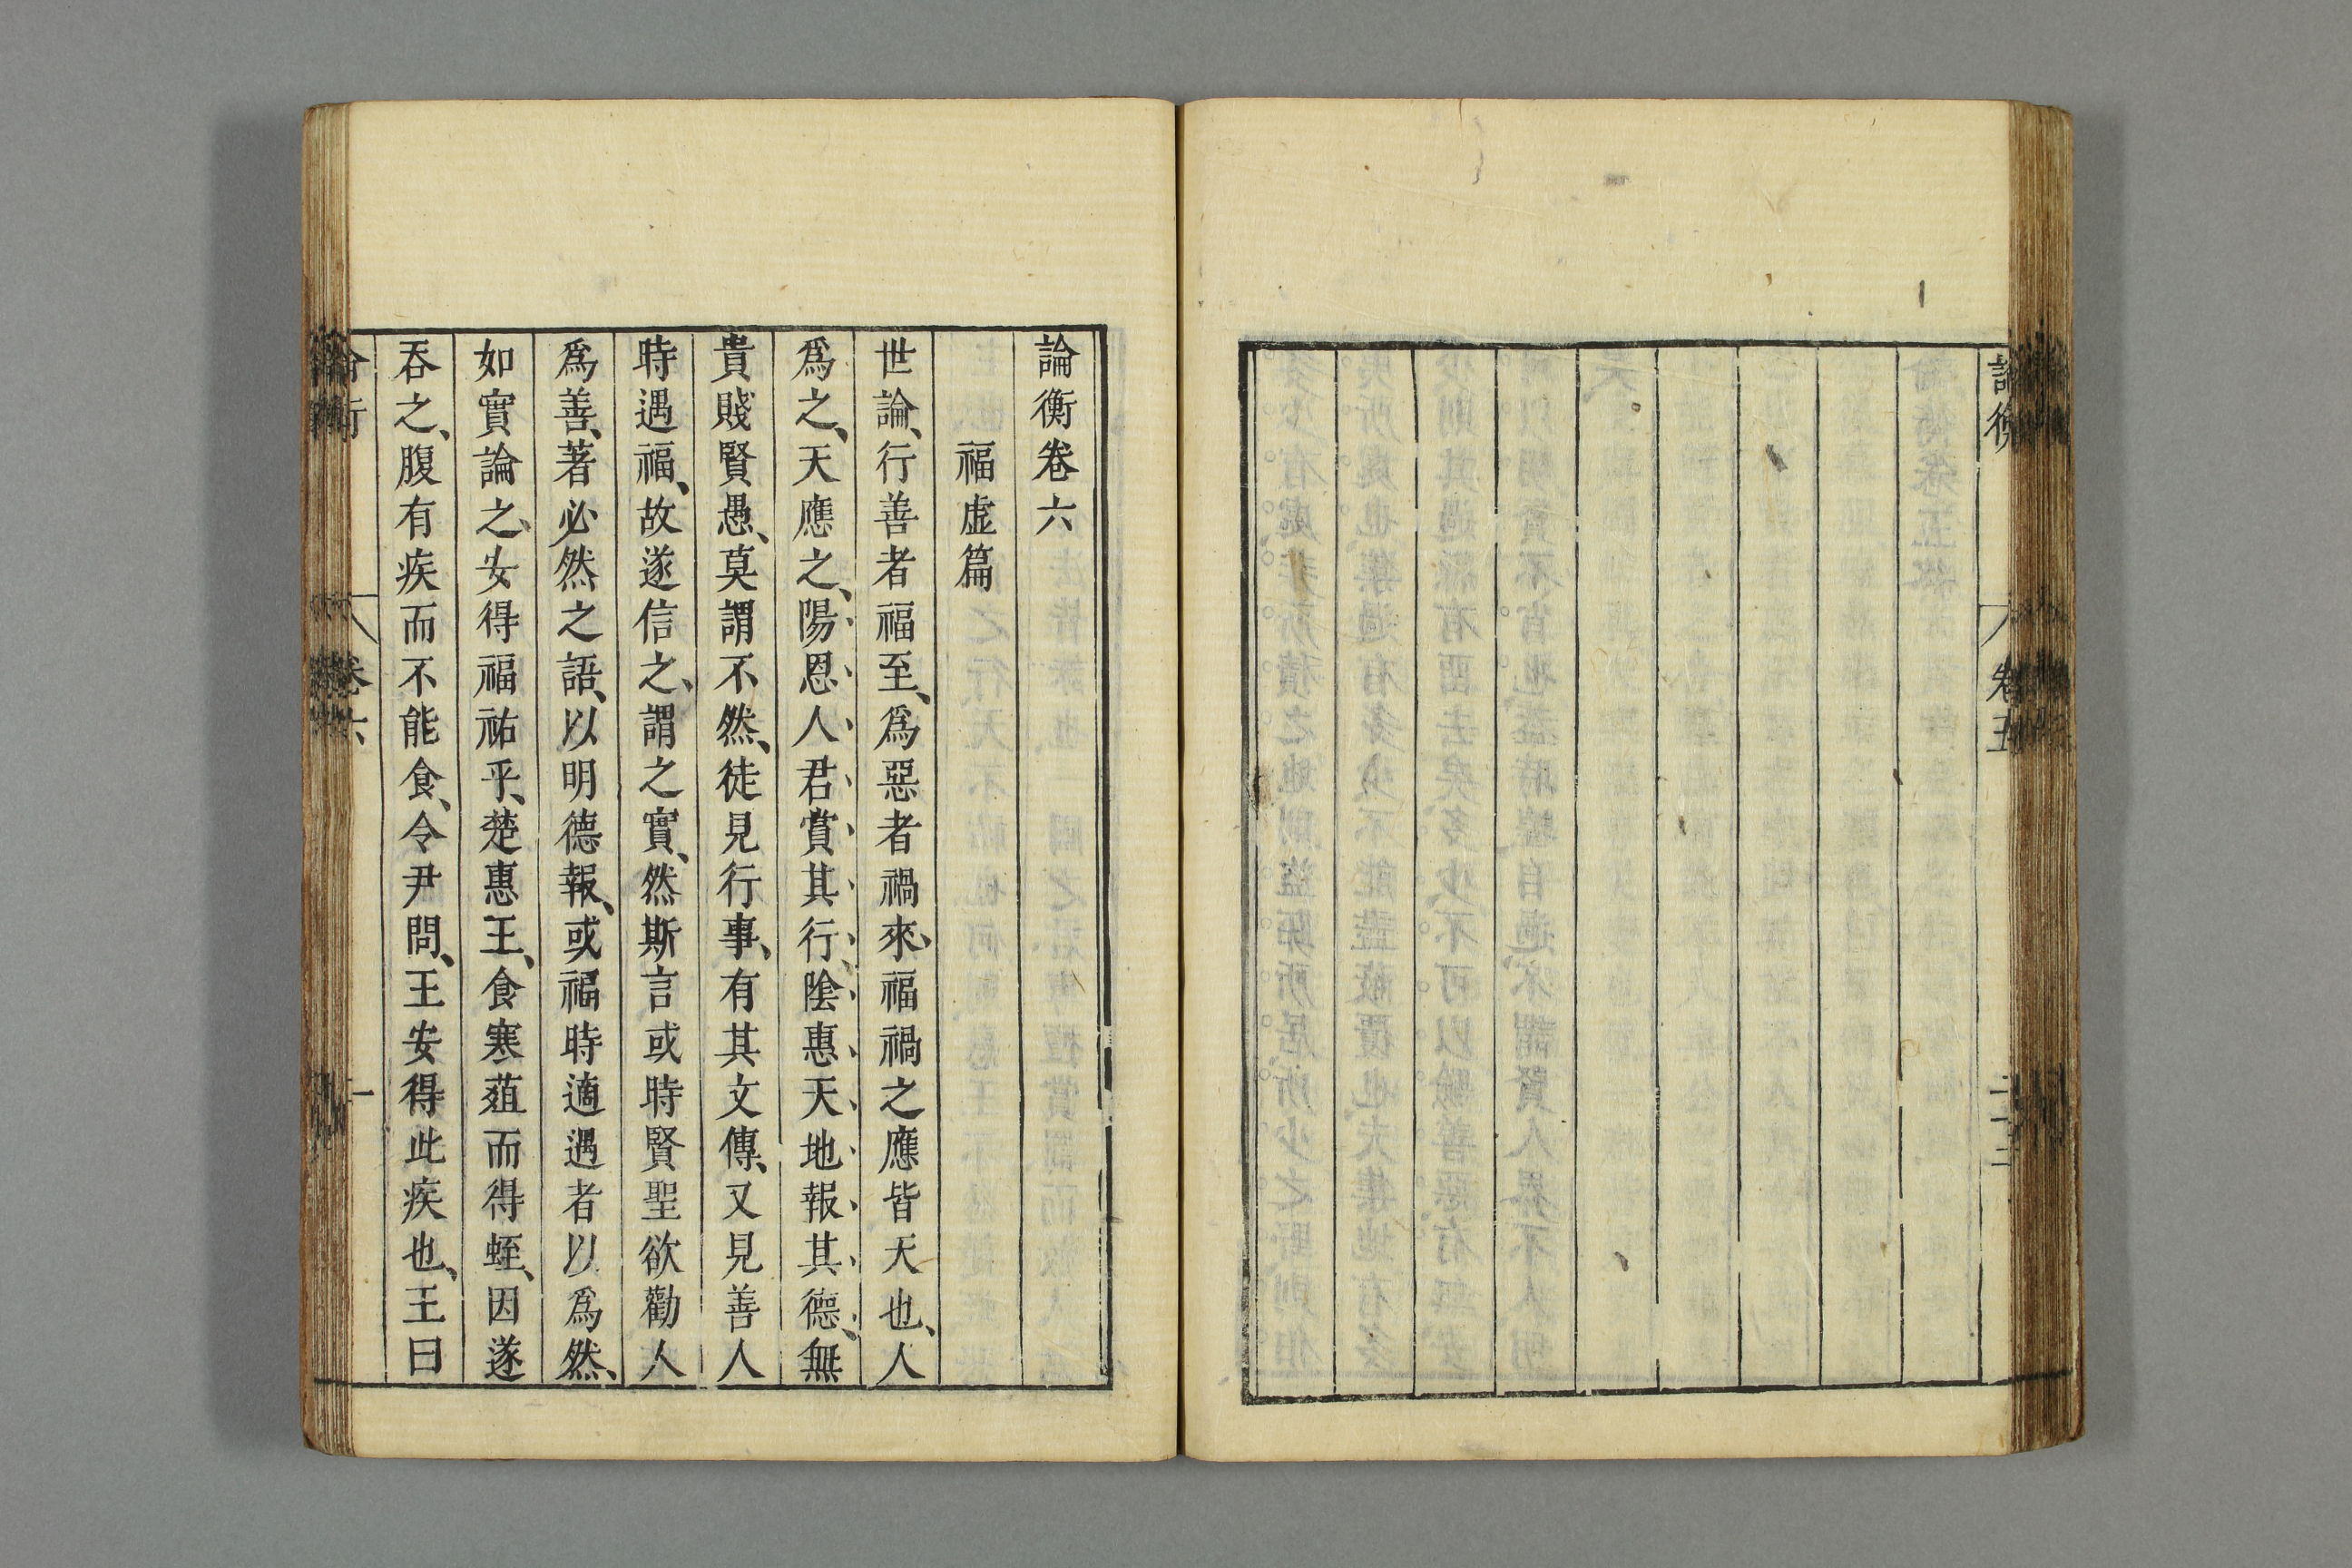 論衡
卷五
二十二
論衡卷六
福虛篇
世論、行善者福至、爲惡者禍來、福禍之應皆天也、人
爲之、天應之、陽恩、人君賞其行、陰惠、天地報其德、無
貴賤賢愚、莫謂不然、徒見行事、有其文傳、又見善人
時遇福、故遂信之、謂之實、然斯言或時賢聖欲勸人
爲善、著必然之語、以明德報、或福時適遇者以爲然、
如實論之、安得福祐乎、楚惠王、食寒葅而得蛭、因遂
吞之、腹有疾而不能食、令尹問、王安得此疾也、王曰
論衡
卷六
一